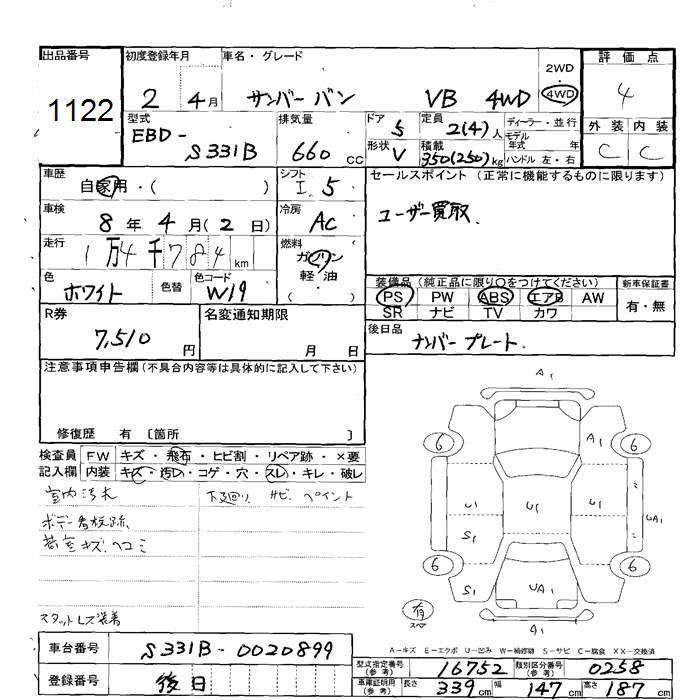 出品番号
1122
初度登録年月
2 4月
車名・グレード
サンバー バン VB 4WD
2WD
4WD
評価点
4
外装 内装
C C
型式
EBD-
S331B
排気量
660 CC
ドア 5
形状 V
定員
2(4)人
積載
350(250)kg
ディーラー・並行
モデル
年式 年
ハンドル 左・右
車歴
自家用・( )
シフト
I 5
セールスポイント (正常に機能するものに限ります)
ユーザー買取.
車検
8年 4月(2日)
冷房
AC
走行
1万4千784km
燃料
ガソリン
軽油
( )
色
ホワイト
色替
色コード
W19
装備品 (純正品に限り○をつけてください)
PS PW ABS エアB AW
SR ナビ TV カワ
新車保証書
有・無
R券
7,510 円
名変通知期限
月 日
後日品
ナンバープレート.
注意事項申告欄(不具合内容等は具体的に記入して下さい)
修復歴 有 〔箇所 〕
検査員
記入欄
FW キズ・飛石・ヒビ割・リペア跡・×要
内装 キズ・汚れ・コゲ・穴・スレ・キレ・破レ
室内汚れ
下廻り サビ ペイント
ボデー看板跡
荷室キズ、ヘコミ
スタットレス装着
A1
6
A1
6
U1
U1
U1
UA1
S1
6
6
S1
UA1
A1
有
スペア
A-キズ E-エクボ U-凹み W-補修跡 S-サビ C-腐食 XX-交換済
車台番号
S331B-0020899
登録番号
後日
型式指定番号
(参考)
16752
類別区分番号
(参考)
0258
車庫証明用
(参考)
長さ 339cm
幅 147cm
高さ 187cm